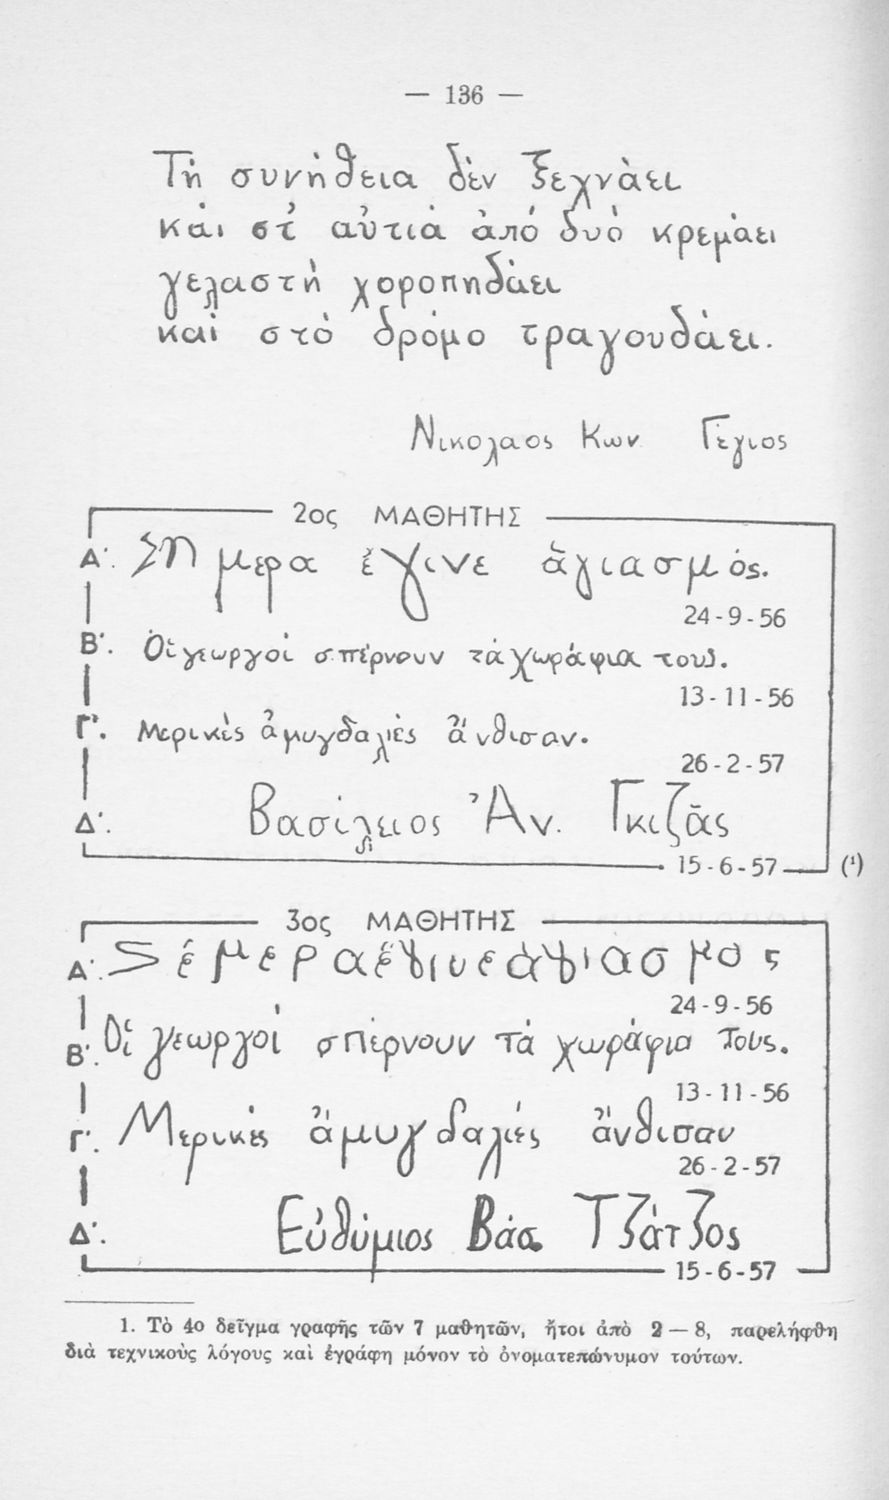 — 136 —
Τὴ συνήθεια δὲν ξεχνὰει
καὶ στ' αὐτιὰ ἀπὸ δυὸ κρεμὰει
γελαστὴ χοροπηδὰει
καὶ στὸ δρόμο τραγουδὰει.
Νικολαος Κων Γὲγιος
2ος ΜΑΘΗΤΗΣ
Α'. Σημερα ἔγινε ἁγιασμός.
24-9-56
Β'. Οἱ γεωργοί σπέρνουν τά χωράφια τους.
13-11-56
Γ'. Μερικὲς ἀμυγδαλιὲς ἄνθισαν.
26-2-57
Δ'. Βασίλειος Ἀν. Γκιζᾶς
15-6-57 (¹)
3ος ΜΑΘΗΤΗΣ
Α'. Sέμερα ἔγινε ἁγιασμος
24-9-56
Β'. Οἱ γεωργοί σπέρνουν τά χωράφια τους.
13-11-56
Γ'. Μερικές ἀμυγδαλιές ἄνθισαν
26-2-57
Δ'. Εὐθύμιος Βάσ. Τζάτζος
15-6-57
1. Τὸ 4ο δεῖγμα γραφῆς τῶν 7 μαθητῶν, ἤτοι ἀπὸ 2 — 8, παρελήφθη
διὰ τεχνικοὺς λόγους καὶ ἐγράφη μόνον τὸ ὀνοματεπώνυμον τούτων.